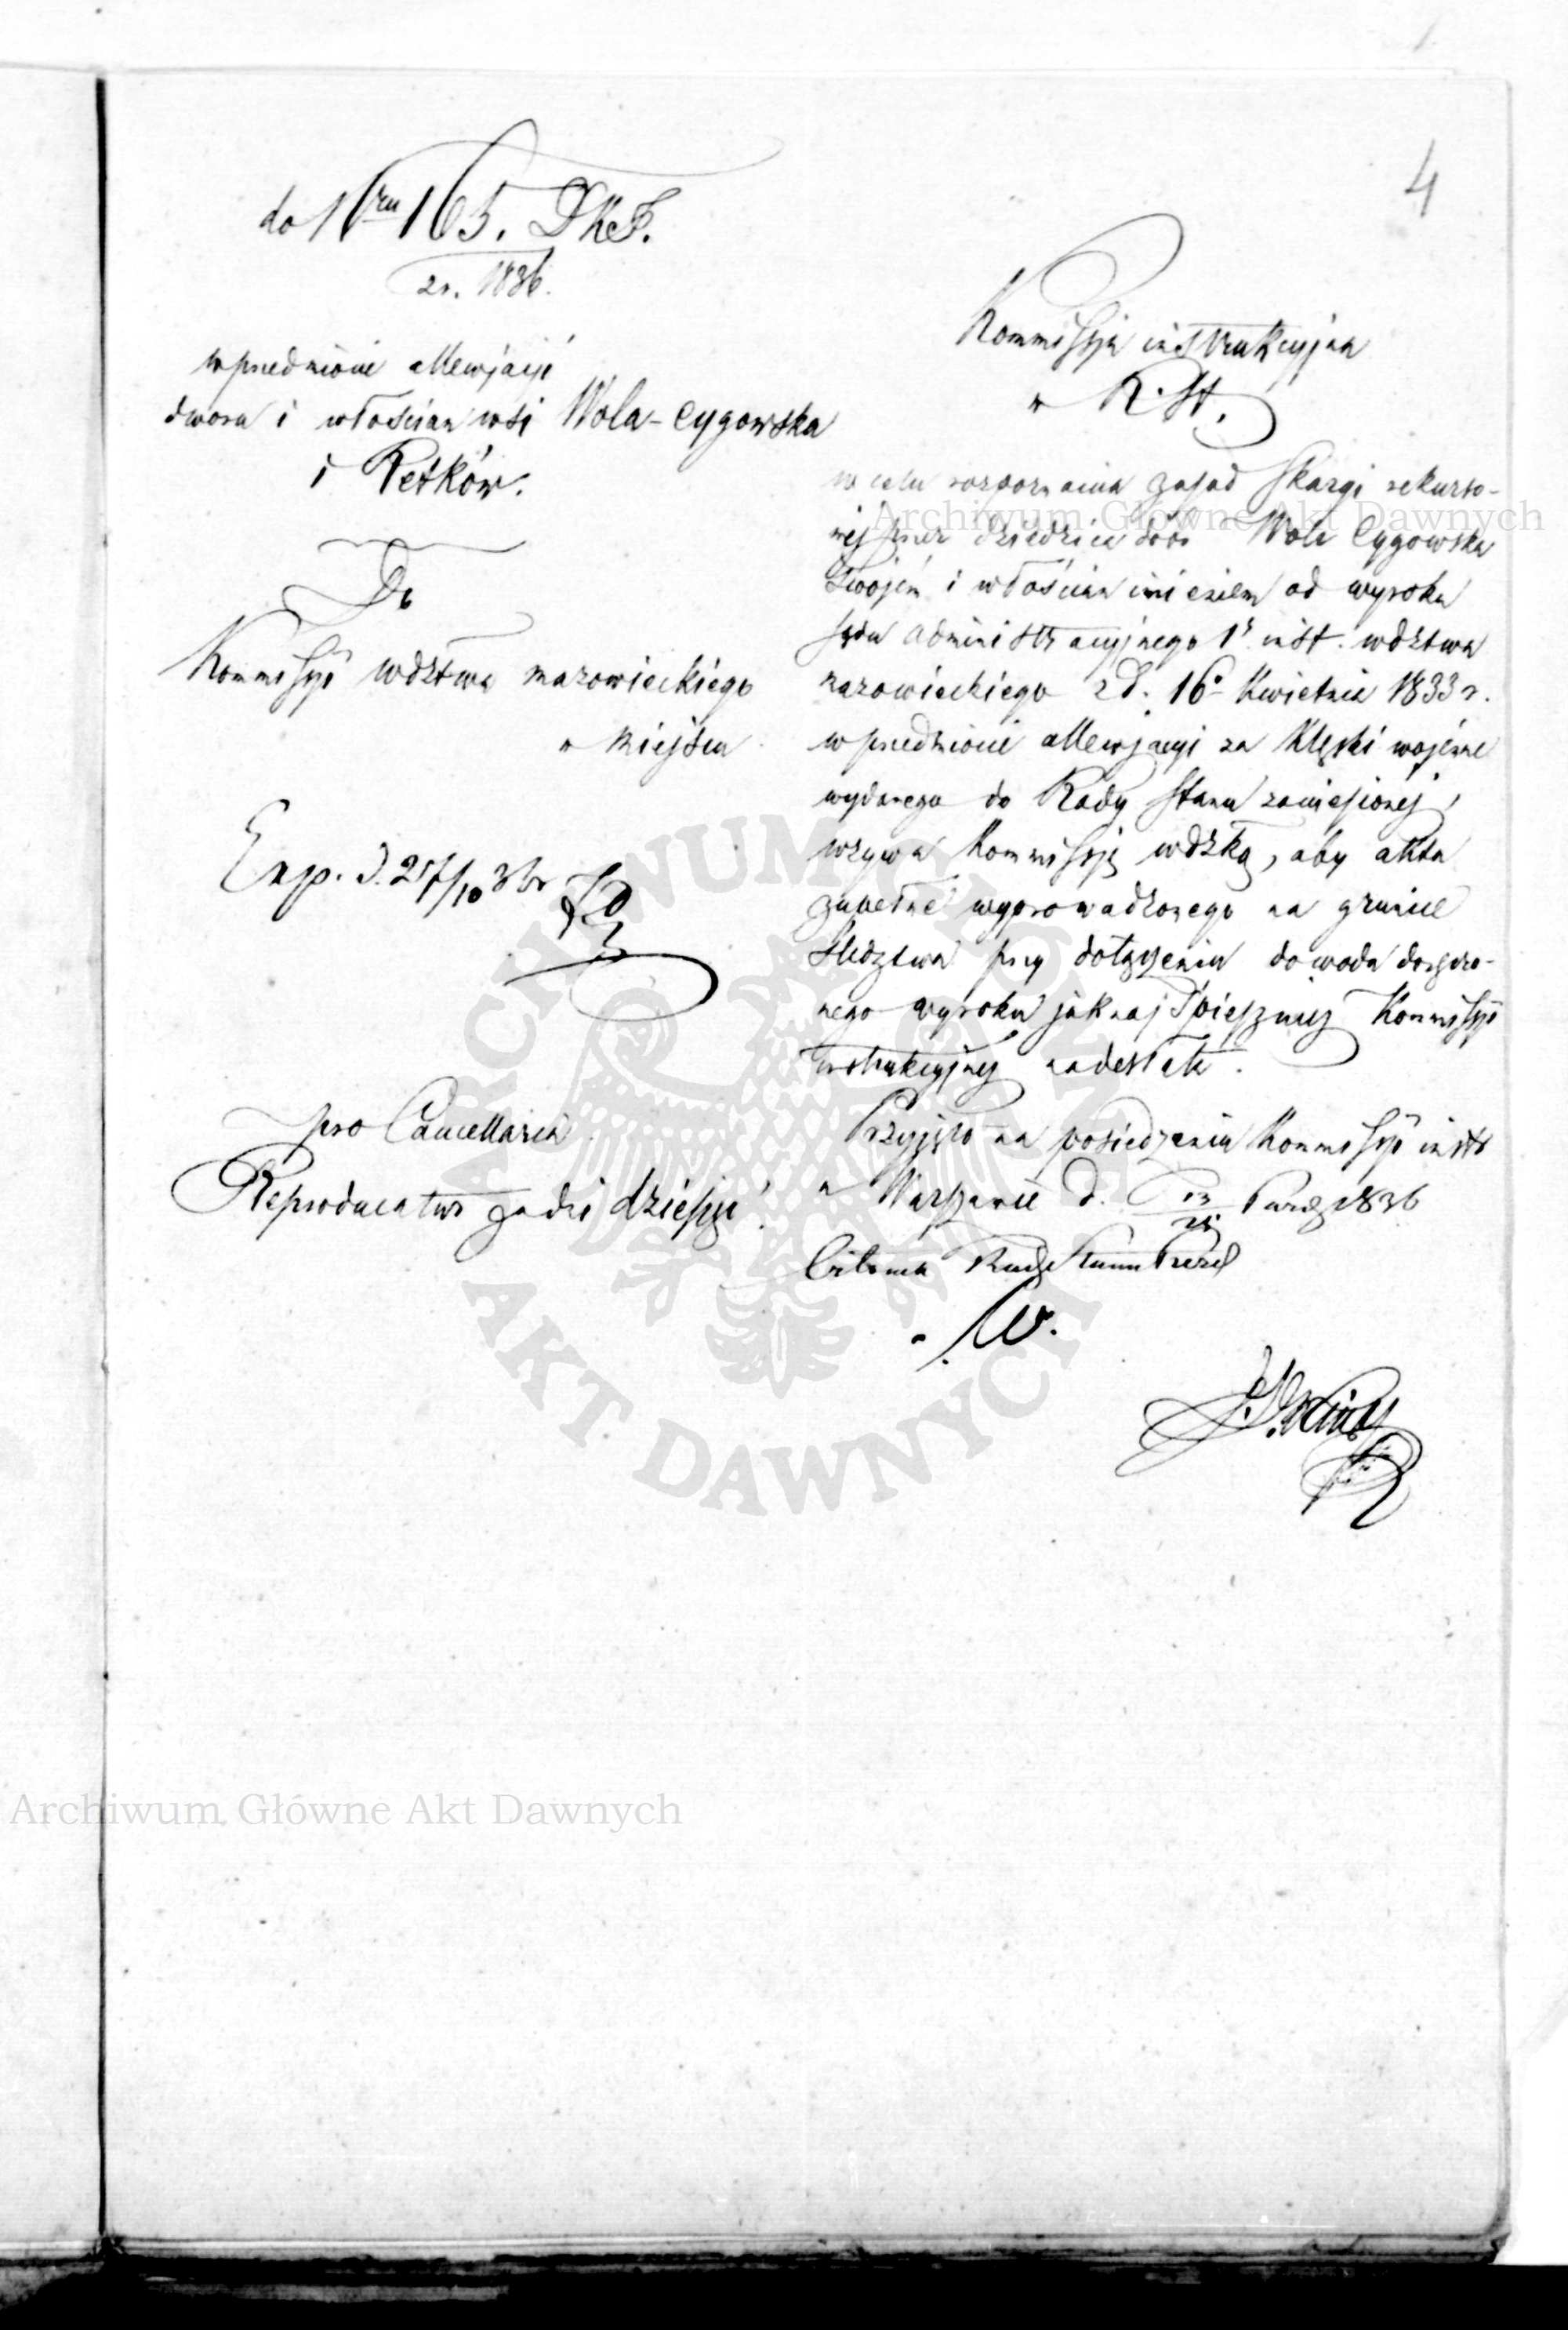 4
do Nru 165. DKS.
z r. 1836.
w przedmiocie allewjacji
dworu i włościan wsi Wola-Cygowska
i Retków.
Do
Kommissyi wdztwa mazowieckiego
w miejscu
Exp. d. 27/10 36 r
pro Cancellaria
Reproducatur za dni dziesięć.
Kommissya instrukcyjna
R. St.
w celu rozpoznania zasad skargi rekurso-
wej przez dziedzica dóbr Wola Cygowska
swojem i włościan imieniem od wyroku
sądu administracyjnego 1 inst. wdztwa
mazowieckiego z d. 16 Kwietnia 1833 r.
w przedmiocie allewjacyi za klęski wojenne
wydanego do Rady Stanu zaniesionej,
wzywa Kommissyę wdzką, aby akta
zupełne wyprowadzonego na gruncie
śledztwa przy dołączeniu dowodu doręczo-
nego wyroku jak najśpieszniej Kommissyi
instrukcyjnej nadesłała.
Przyjęto na posiedzeniu Kommissyi instr
w Warszawie d. 13/25 Paźdz 1836
Radzca Stanu Prezd
Archiwum Główne Akt Dawnych
Archiwum Główne Akt Dawnych
ARCHIWUM GŁÓWNE
AKT DAWNYCH